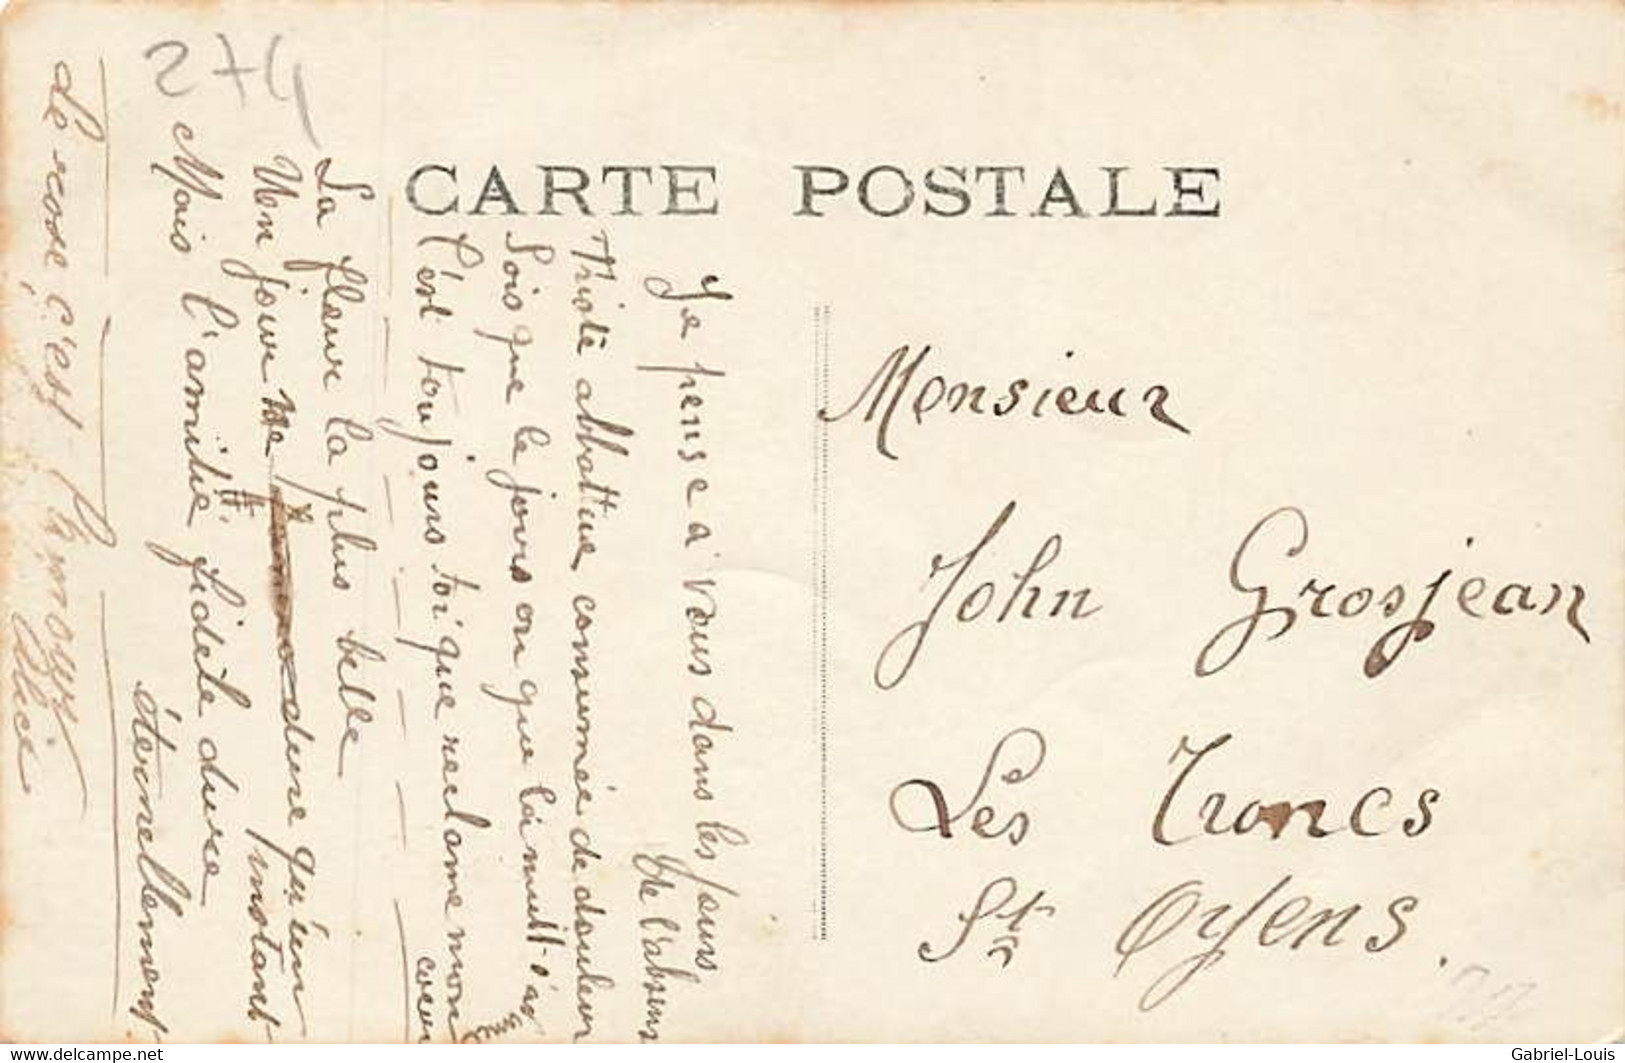 274
CARTE POSTALE
Je pense a' vous dans les jours
de l'absens
Triste abbattue consumée de douleur
Sois que le jours ou que la nuit s'av
C'est toujours toi que reclame mon
coeur
La fleur la plus belle
Un jour ne dure qu'un
instant
Mais l'amitié fidèle dure
éternellement.
Le rose, c'est l'amour
Alice
Monsieur
John Grosjean
Les Troncs
St Oyens.
Gabriel-Louis